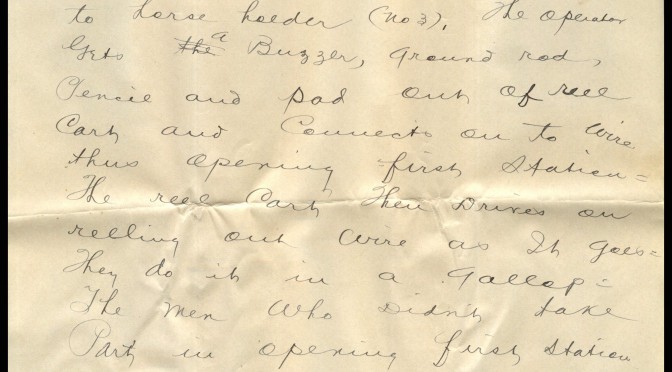 to horse holder (No 3), The operator
Gets the a Buzzer, ground rod,
Pencil and pad out of reel
Cart and Connects on to wire
thus opening first Station =
The reel Cart Then Drives on
relling out wire as It goes =
They do it in a gallop =
The men Who Didn't take
Part in opening first Station